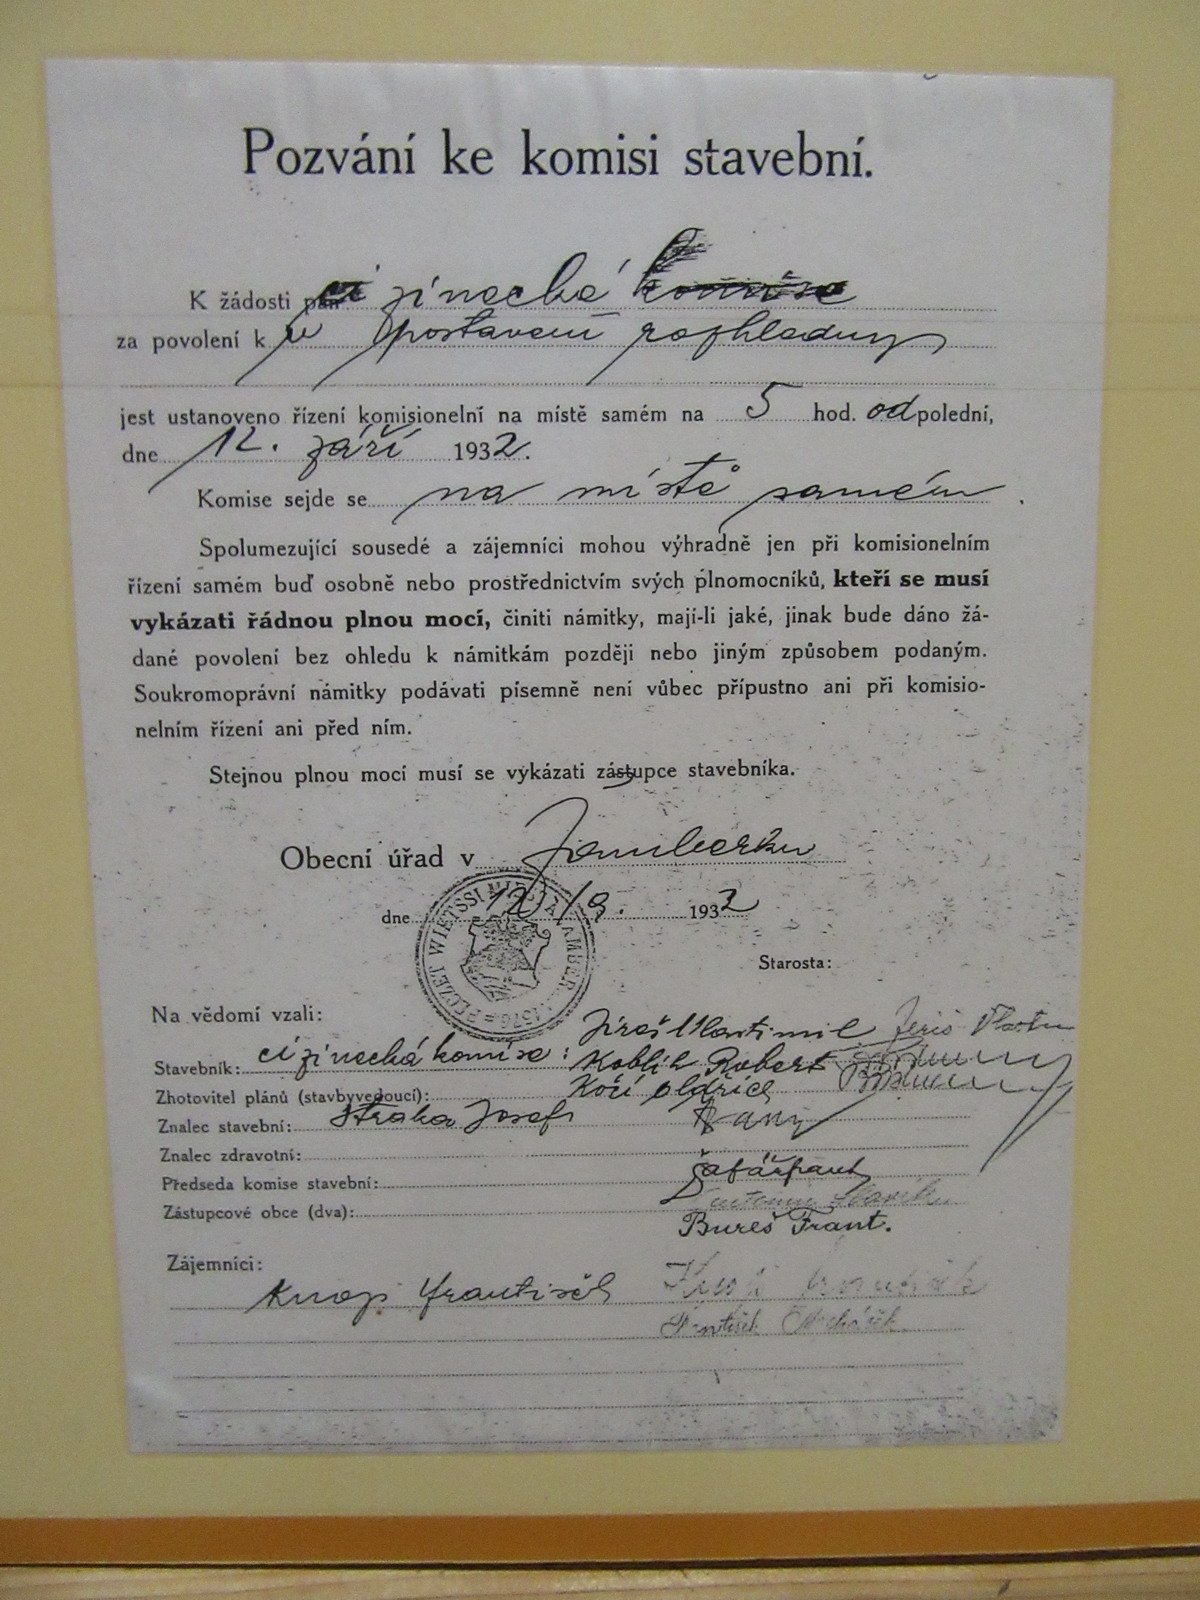 Pozvání ke komisi stavební.
K žádosti pan cizinecká komise
za povolení k postavení rozhledny
jest ustanoveno řízení komisionelní na místě samém na 5 hod. odpolední,
dne 12. září 1932.
Komise sejde se na místě samém .
Spolumezující sousedé a zájemníci mohou výhradně jen při komisionelním
řízení samém buď osobně nebo prostřednictvím svých plnomocníků, kteří se musí
vykázati řádnou plnou mocí, činiti námitky, mají-li jaké, jinak bude dáno žá-
dané povolení bez ohledu k námitkám později nebo jiným způsobem podaným.
Soukromoprávní námitky podávati písemně není vůbec přípustno ani při komisio-
nelním řízení ani před ním.
Stejnou plnou mocí musí se vykázati zástupce stavebníka.
Obecní úřad v Žamberku
dne 12/9. 1932
Starosta:
Na vědomí vzali:
Jireš Vlastimil
Stavebník: cizinecká komise: Koblik Robert
Zhotovitel plánů (stavbyvedoucí): Kočí Oldřich
Znalec stavební: Straka Josef
Znalec zdravotní:
Předseda komise stavební:
Zástupcové obce (dva):
Bureš Frant.
Zájemníci:
Knop František